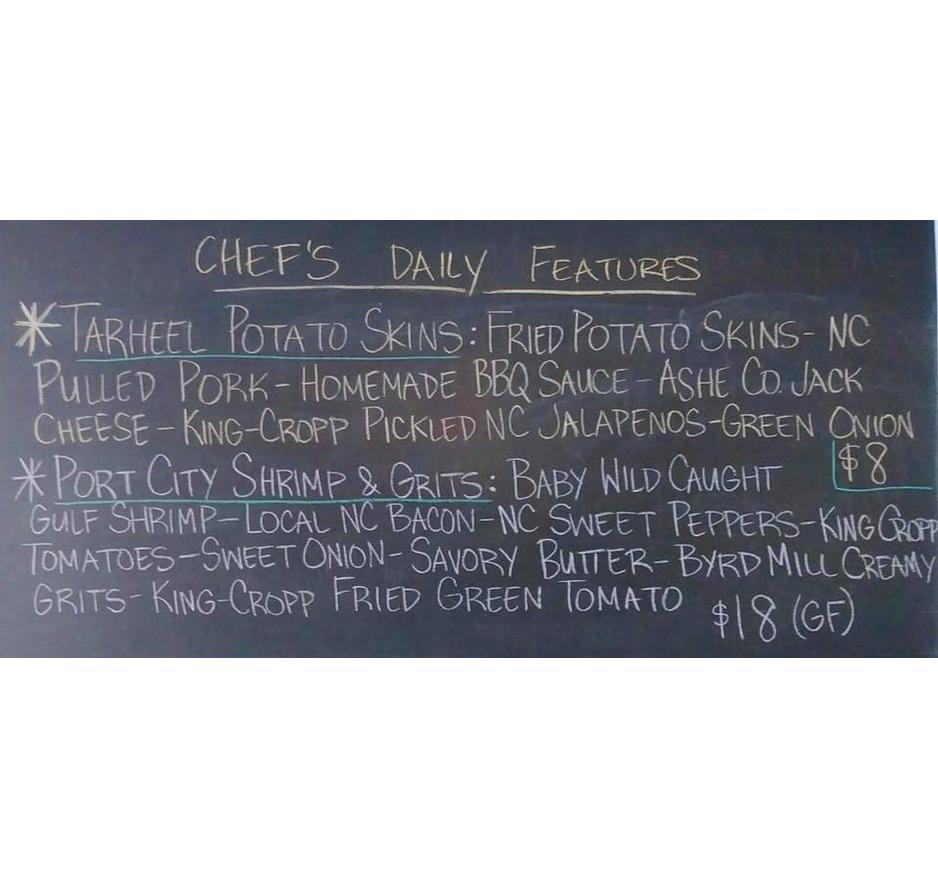 CHEF'S DAILY FEATURES
*TARHEEL POTATO SKINS: FRIED POTATO SKINS- NC
PULLED PORK - HOMEMADE BBQ SAUCE - ASHE CO. JACK
CHEESE - KING-CROPP PICKLED NC JALAPENOS-GREEN ONION
$8
*PORT CITY SHRIMP & GRITS: BABY WILD CAUGHT
GULF SHRIMP- LOCAL NC BACON-NC SWEET PEPPERS-KING CROPP
TOMATOES-SWEET ONION- SAVORY BUTTER- BYRD MILL CREAMY
GRITS- KING-CROPP FRIED GREEN TOMATO
$18 (GF)